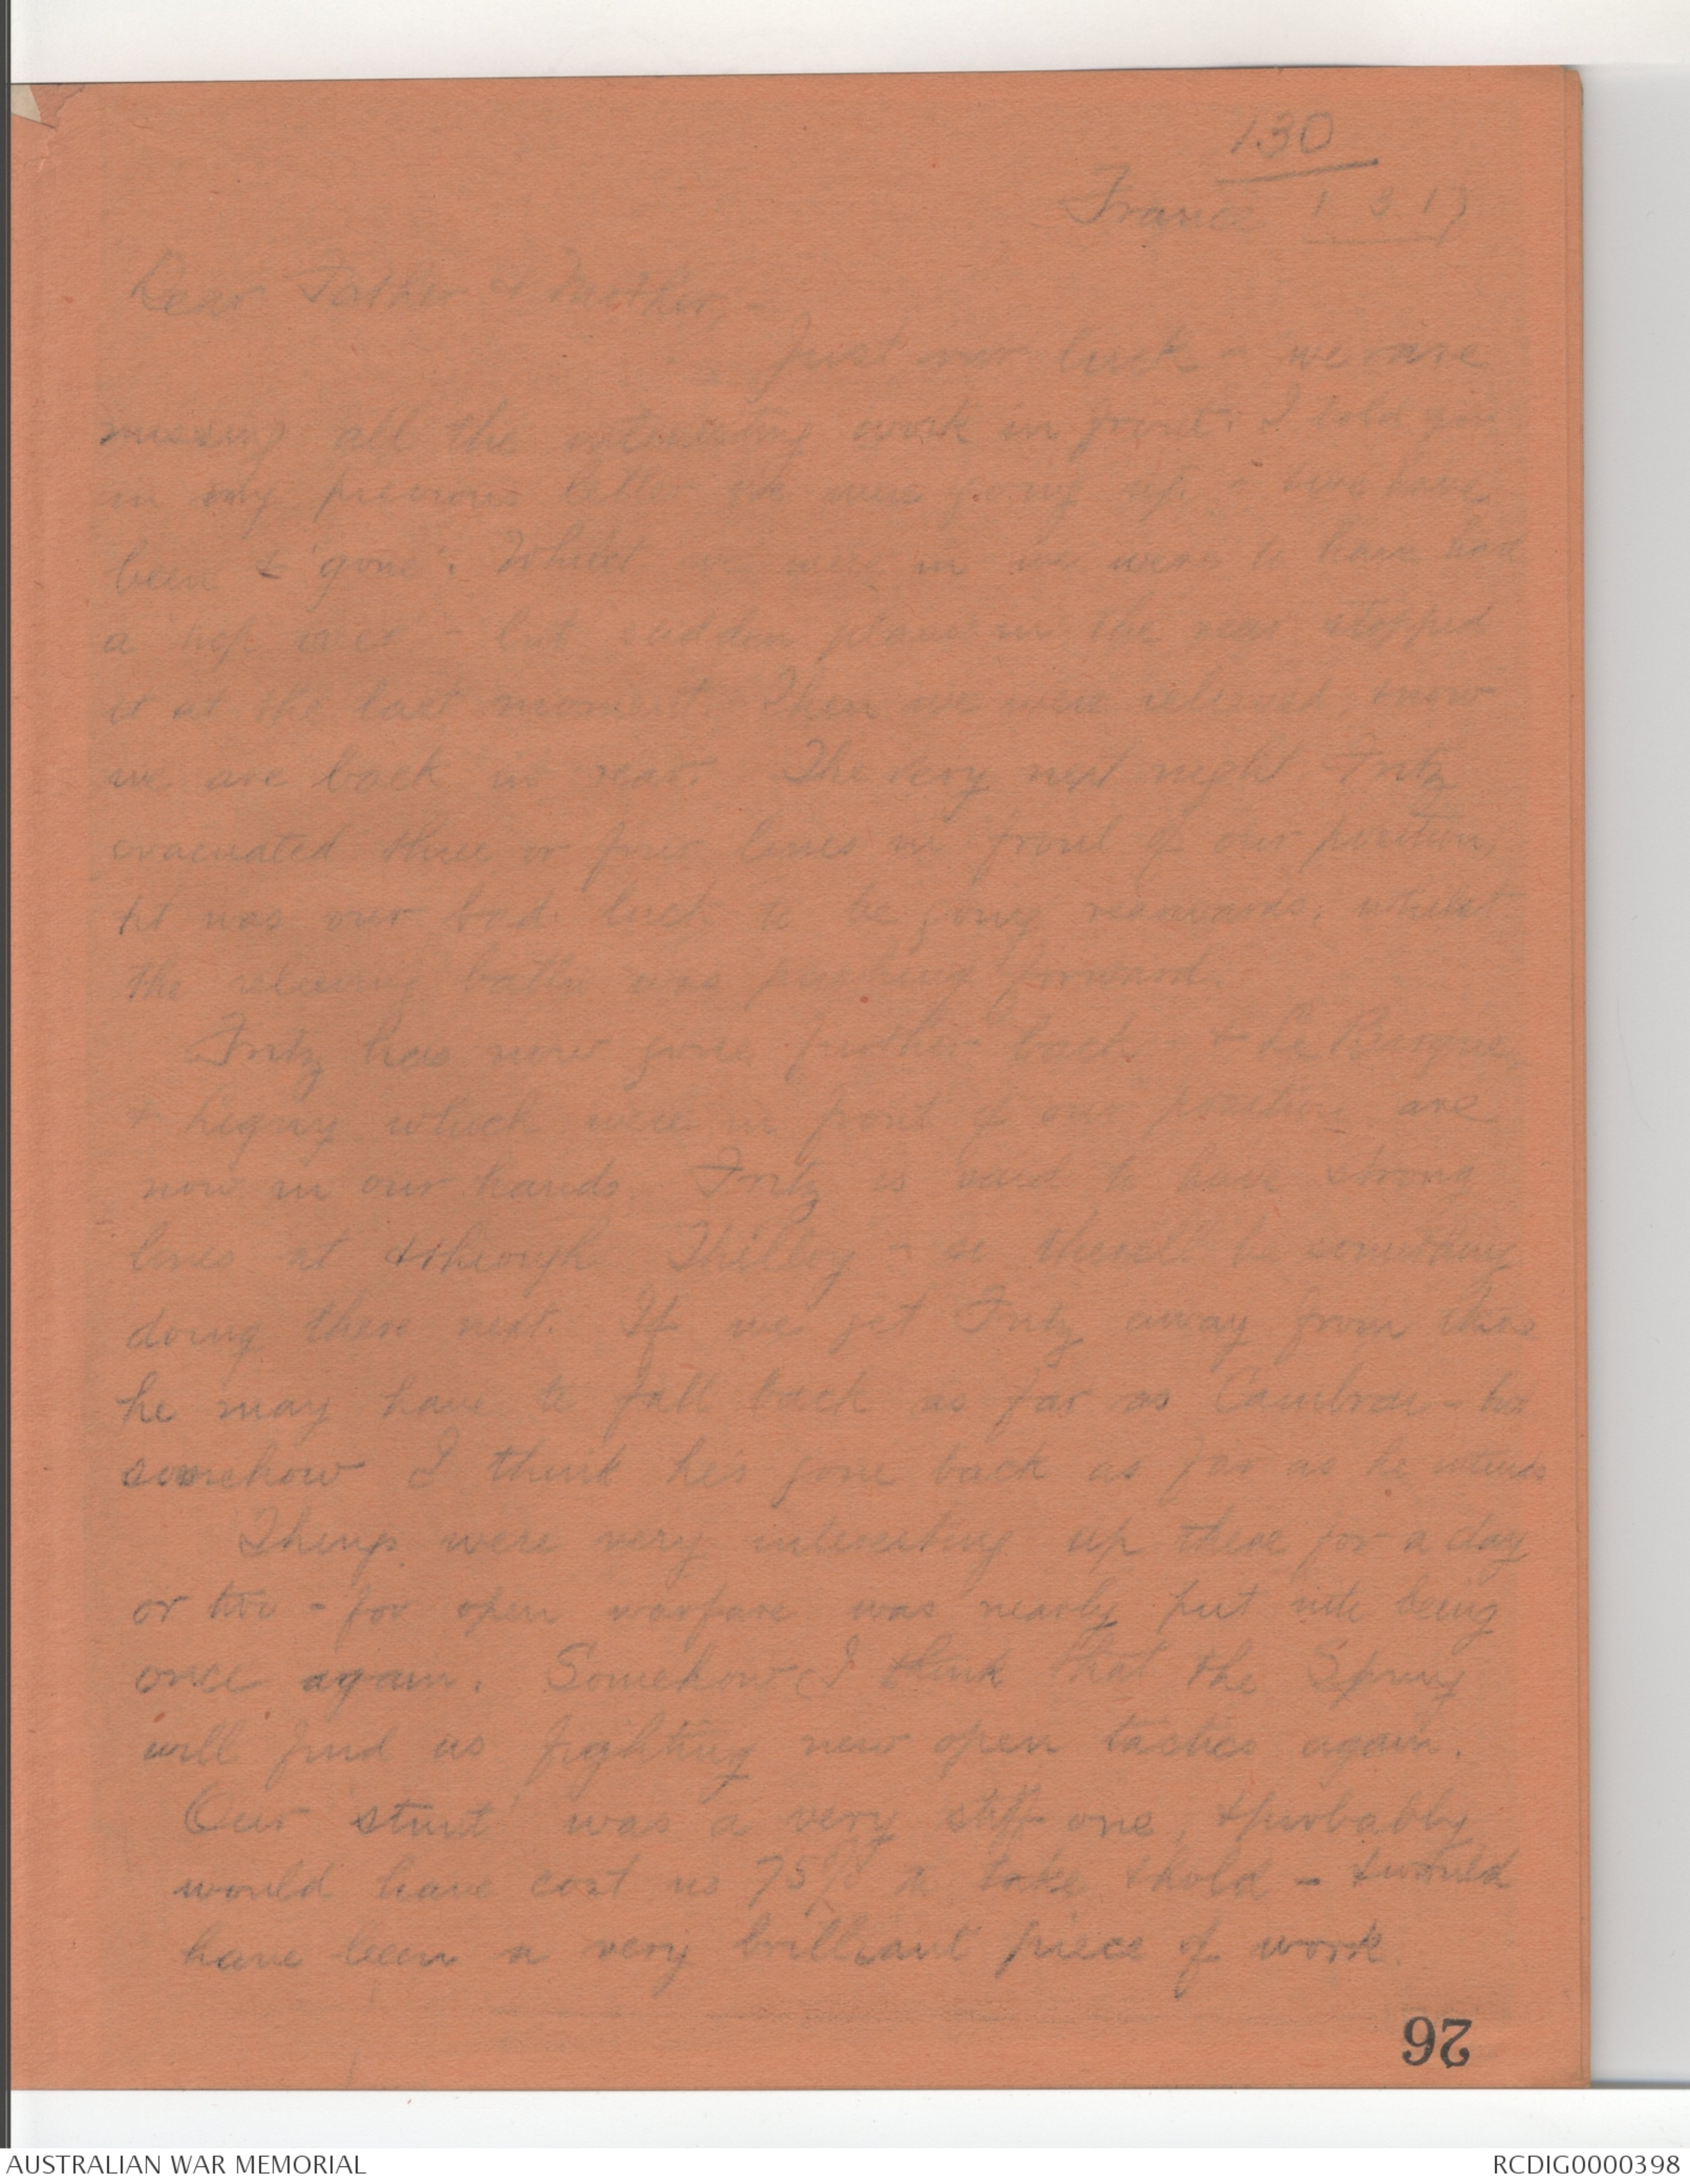 130
France 1 3 17
Dear Father & Mother, -
Just our luck - we are
missing all the interesting work in front. I told you
in my previous letter we were going up, - have
been & 'gone'. Whilst we were in we were to have had
a 'hop over' - but sudden plans in the rear stopped
it at the last moment. Then we were relieved, & now
we are back in rear. The very next night Fritz
evacuated three or four lines in front of our position,
& it was our bad luck to be going rearwards, whilst
the relieving battn was pushing forward.
Fritz has now gone further back - & Le Barque,
& Ligny which were in front of our position are
now in our hands. Fritz is said to have strong
lines at & through Thilloy - so there'll be something
doing there next. If we get Fritz away from
he may have to fall back as far as Cambrai - but
somehow I think he's gone back as far as he intends
Things were very interesting up there for a day
or two - for open warfare was nearly put into being
once again. Somehow I think that the Spring
will find us fighting new open tactics again.
Our 'stunt' was a very stiff one, & probably
would have cost us 75% to take & hold - & would
have been a very brilliant piece of work.
26
AUSTRALIAN WAR MEMORIAL
RCDIG0000398